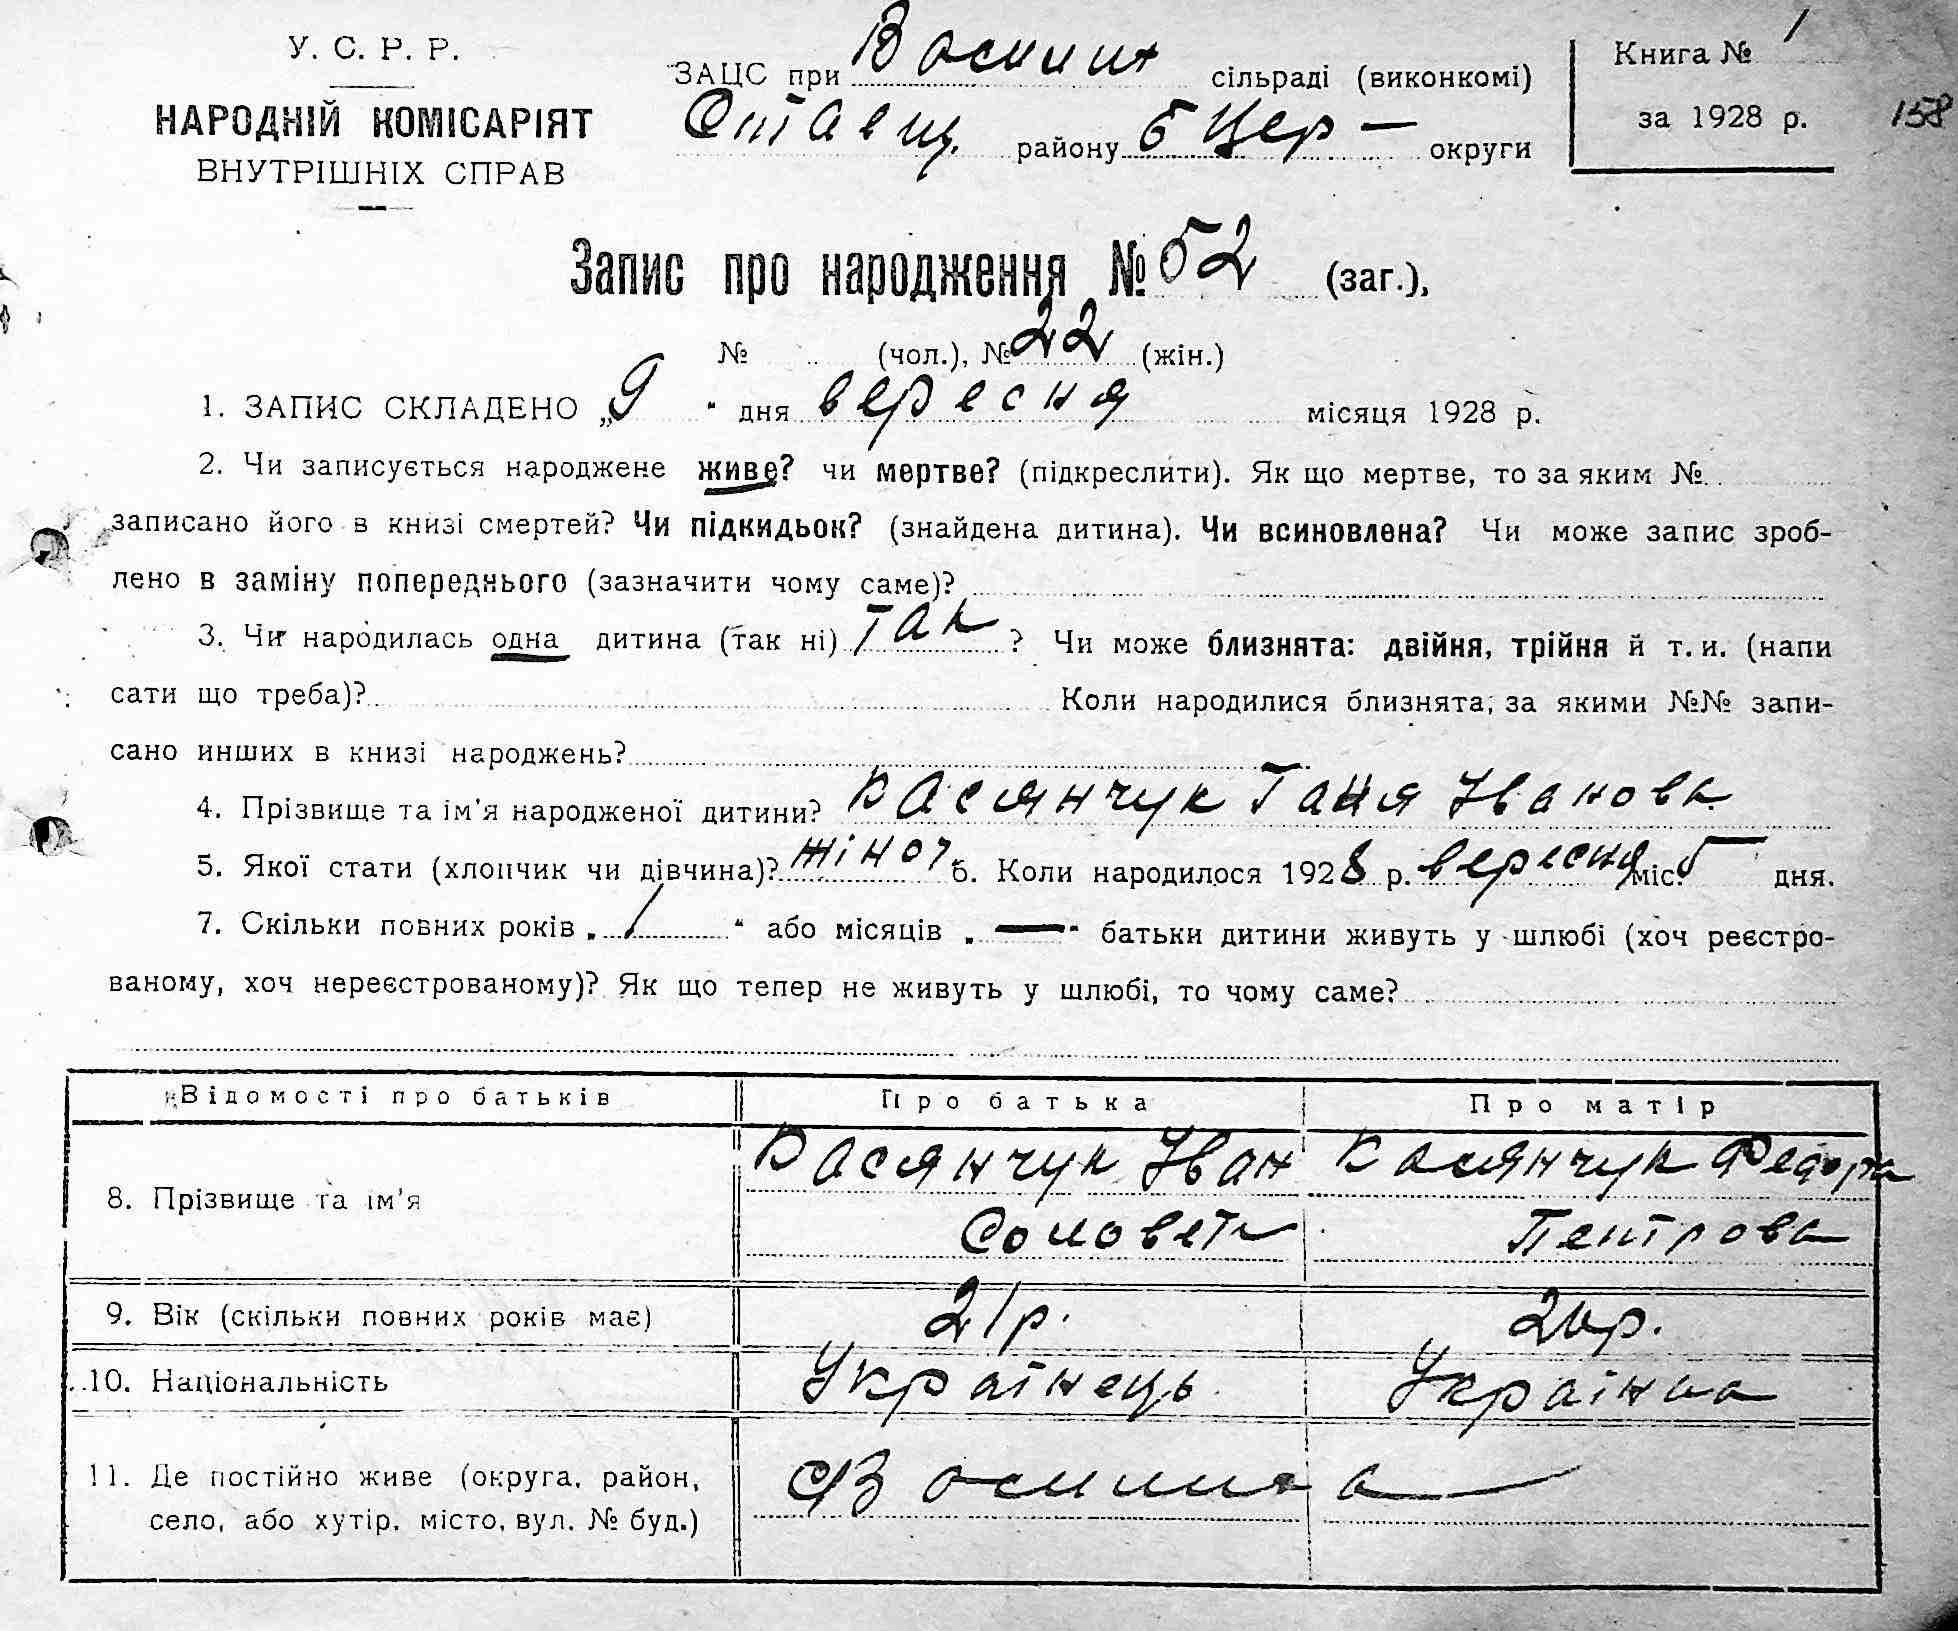 У. С. Р. Р.
НАРОДНІЙ КОМІСАРІЯТ
ВНУТРІШНІХ СПРАВ
ЗАЦС при сільраді (виконкомі)
Ставищ. району Б Цер — округи
Книга № 1
за 1928 р.
158
Запис про народження № 52 (заг.),
№ (чол.), № 22 (жін.)
1. ЗАПИС СКЛАДЕНО „9“ дня вересня місяця 1928 р.
2. Чи записується народжене живе? чи мертве? (підкреслити). Як що мертве, то за яким №
записано його в книзі смертей? Чи підкидьок? (знайдена дитина). Чи всиновлена? Чи може запис зроб-
лено в заміну попереднього (зазначити чому саме)?
3. Чи народилась одна дитина (так ні) так ? Чи може близнята: двійня, трійня й т. и. (напи
сати що треба)? Коли народилися близнята, за якими №№ запи-
сано инших в книзі народжень?
4. Прізвище та ім'я народженої дитини? Касянчук Ганя Іванова
5. Якої стати (хлопчик чи дівчина)? жіноч. 6. Коли народилося 1928 р. вересня міс. 5 дня.
7. Скільки повних років „ 1 “ або місяців „ — “ батьки дитини живуть у шлюбі (хоч реєстро-
ваному, хоч нереєстрованому)? Як що тепер не живуть у шлюбі, то чому саме?
Відомості про батьків Про батька Про матір
8. Прізвище та ім'я Касянчук Іван Касянчук Федора
Пентрова
9. Вік (скільки повних років має) 21 р. 20 р.
10. Національність Українець Українка
11. Де постійно живе (округа, район,
село, або хутір, місто, вул. № буд.)